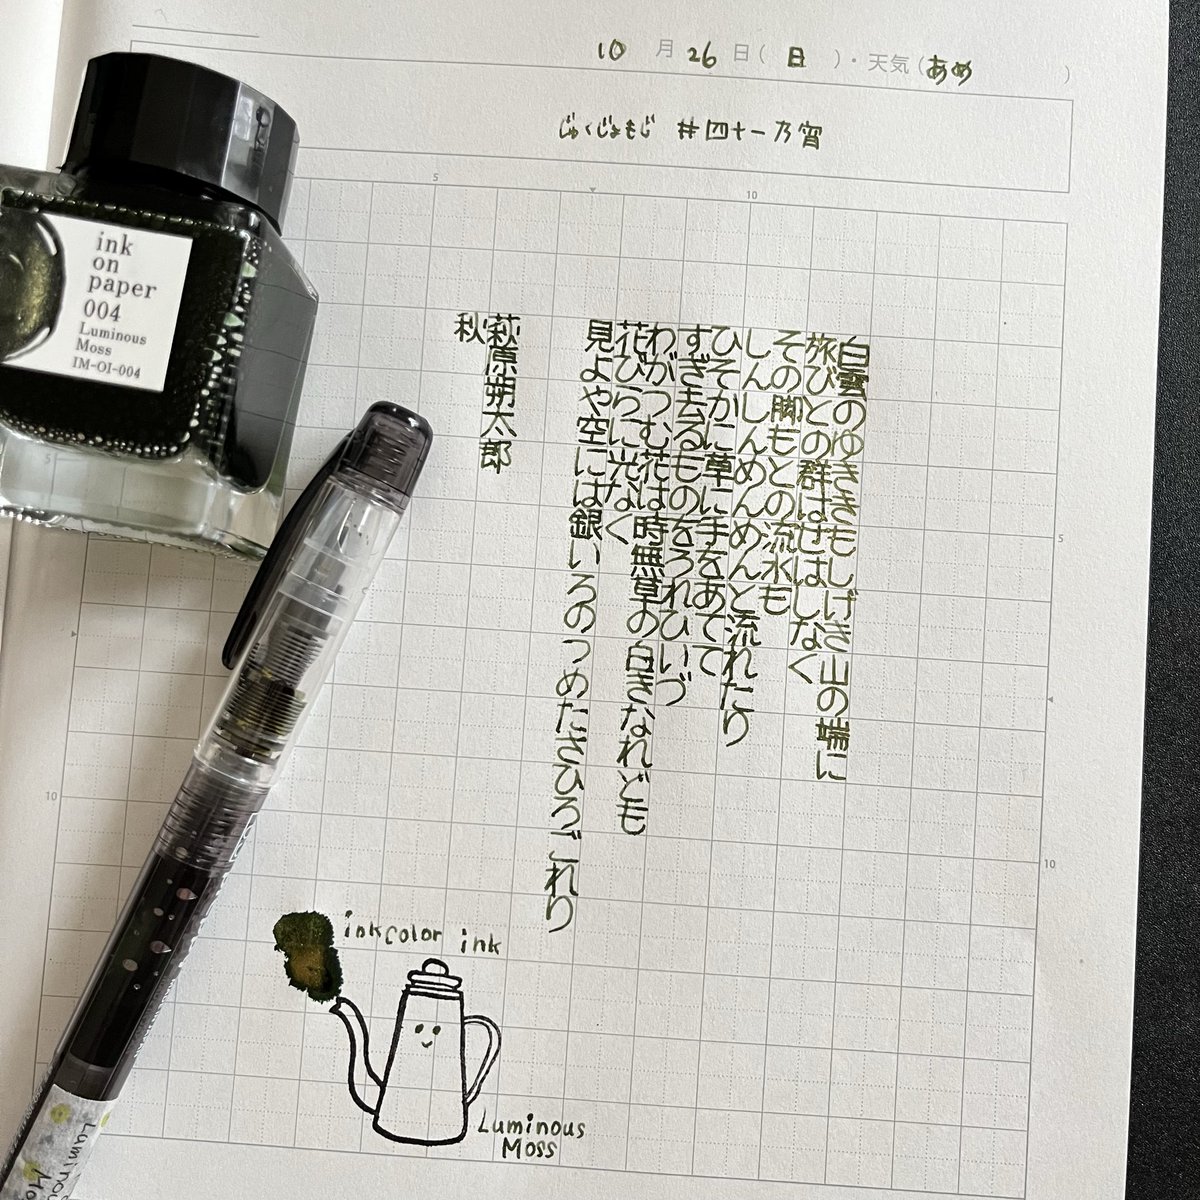 10月26日(日)・天気(あめ)
じゅくじょもじ #四十一乃宵
5
10
白雲のゆききもしげき山の端に
旅びとの群はせはしなく
その脚もとの流水も
しんしんめんめんと流れたり
ひそかに草に手をあてて
すぎ去るものをうれひいづ
わがつむ花は時無草の白きなれども
花びらに光なく
見よや空には銀いろのつめたさひろごれり
萩原朔太郎
秋
5
10
5
10
ink
on
paper
004
Luminous
Moss
IM-OI-004
inkcolor ink
Luminous
Moss